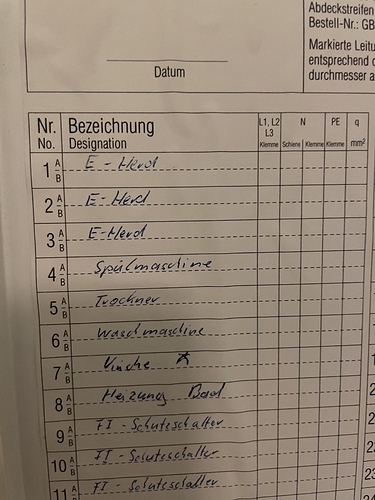 Abdeckstreifen
Bestell-Nr.: GB
Markierte Leitu
entsprechend d
durchmesser a
Datum
Nr. Bezeichnung L1, L2 N PE q
L3
No. Designation Klemme Schiene Klemme Klemme mm²
1 A B E-Herd
2 A B E-Herd
3 A B E-Herd
4 A B Spülmaschine
5 A B Trockner
6 A B Waschmaschine
7 A B Küche
8 A B Heizung Bad
9 A B FI-Schutzschalter
10 A B FI-Schutzschalter
11 A FI-Schutzschalter